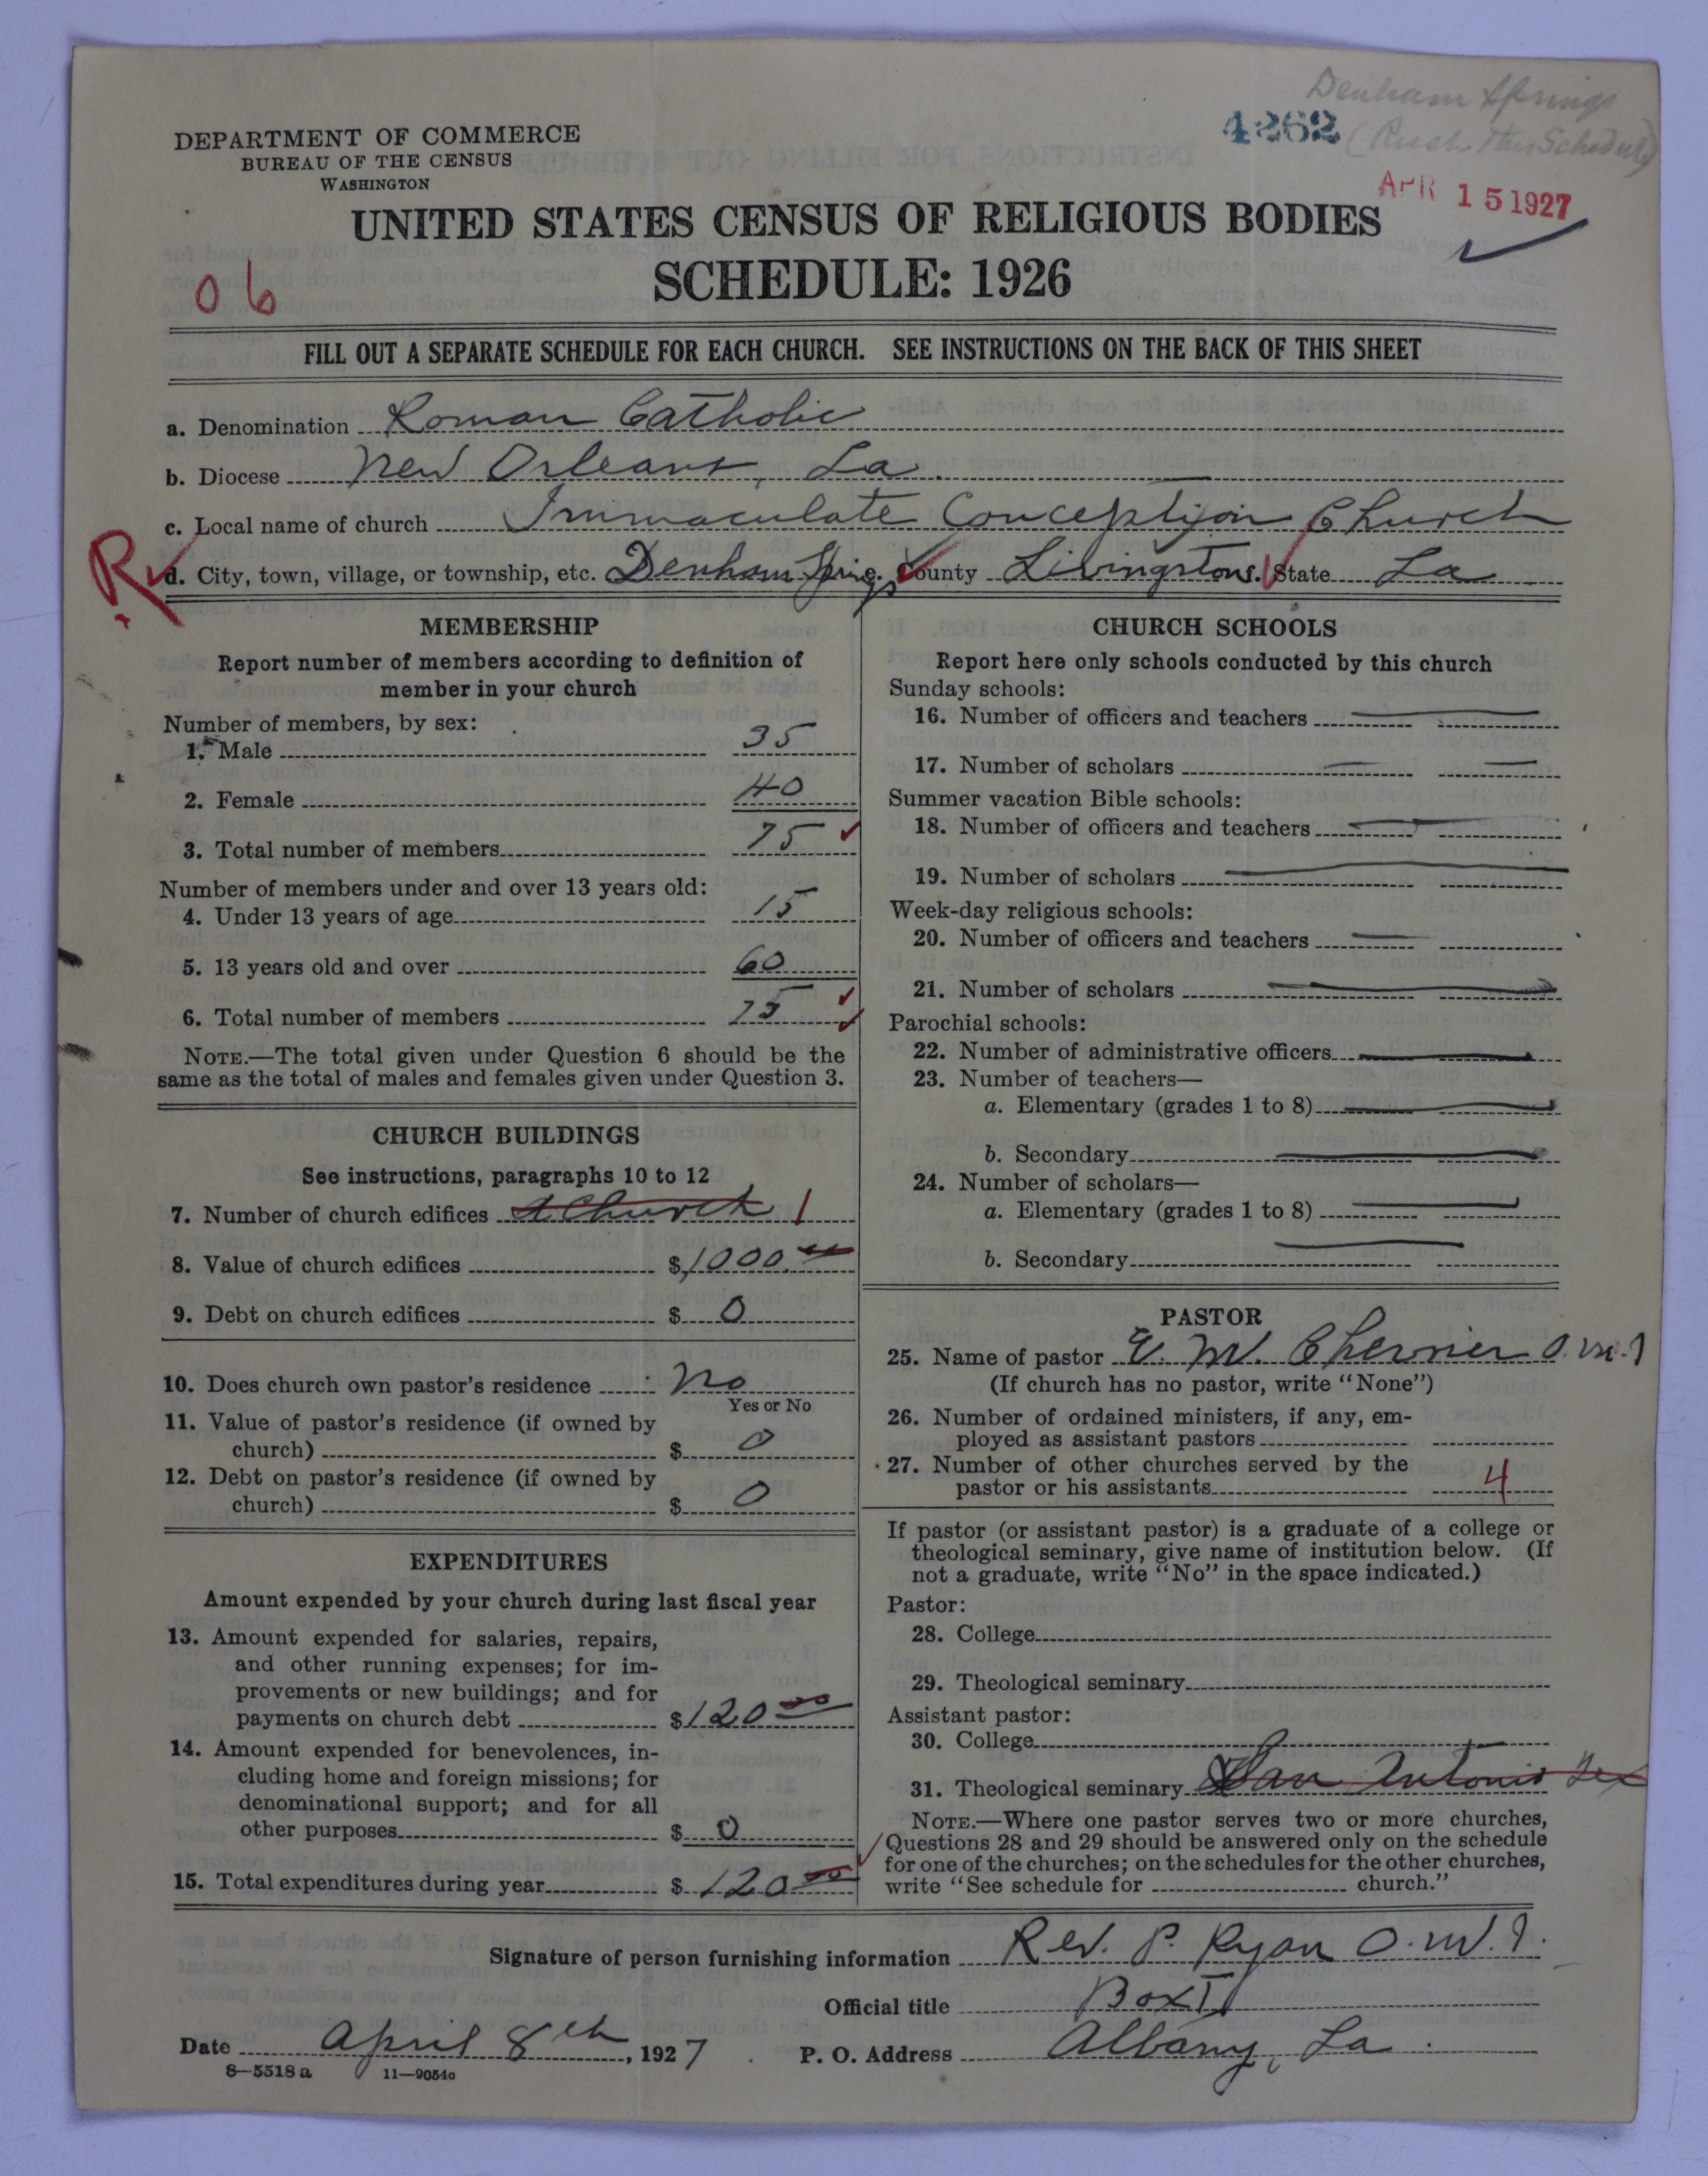 Denham Springs
4262
(Rush This Schedule)
DEPARTMENT OF COMMERCE
BUREAU OF THE CENSUS
WASHINGTON
APR 15 1927
UNITED STATES CENSUS OF RELIGIOUS BODIES
SCHEDULE: 1926
06
FILL OUT A SEPARATE SCHEDULE FOR EACH CHURCH. SEE INSTRUCTIONS ON THE BACK OF THIS SHEET
a. Denomination Roman Catholic
b. Diocese New Orleans, La.
c. Local name of church Immaculate Conception Church
R
d. City, town, village, or township, etc. Denham Springs County Livingston State La
MEMBERSHIP
Report number of members according to definition of
member in your church
Number of members, by sex:
1. Male 35
2. Female 40
3. Total number of members 75
Number of members under and over 13 years old:
4. Under 13 years of age 15
5. 13 years old and over 60
6. Total number of members 75
NOTE.—The total given under Question 6 should be the
same as the total of males and females given under Question 3.
CHURCH BUILDINGS
See instructions, paragraphs 10 to 12
7. Number of church edifices Church 1
8. Value of church edifices $1000.00
9. Debt on church edifices $ 0
10. Does church own pastor's residence No
Yes or No
11. Value of pastor's residence (if owned by
church) $ 0
12. Debt on pastor's residence (if owned by
church) $ 0
EXPENDITURES
Amount expended by your church during last fiscal year
13. Amount expended for salaries, repairs,
and other running expenses; for im-
provements or new buildings; and for
payments on church debt $120 00
14. Amount expended for benevolences, in-
cluding home and foreign missions; for
denominational support; and for all
other purposes $ 0
15. Total expenditures during year $ 120 00
CHURCH SCHOOLS
Report here only schools conducted by this church
Sunday schools:
16. Number of officers and teachers
17. Number of scholars
Summer vacation Bible schools:
18. Number of officers and teachers
19. Number of scholars
Week-day religious schools:
20. Number of officers and teachers
21. Number of scholars
Parochial schools:
22. Number of administrative officers
23. Number of teachers—
a. Elementary (grades 1 to 8)
b. Secondary
24. Number of scholars—
a. Elementary (grades 1 to 8)
b. Secondary
PASTOR
25. Name of pastor E. M. Chevrier O.M.I
(If church has no pastor, write "None")
26. Number of ordained ministers, if any, em-
ployed as assistant pastors
27. Number of other churches served by the
pastor or his assistants 4
If pastor (or assistant pastor) is a graduate of a college or
theological seminary, give name of institution below. (If
not a graduate, write "No" in the space indicated.)
Pastor:
28. College
29. Theological seminary
Assistant pastor:
30. College
31. Theological seminary San Antonio Tex
NOTE.—Where one pastor serves two or more churches,
Questions 28 and 29 should be answered only on the schedule
for one of the churches; on the schedules for the other churches,
write "See schedule for church."
Signature of person furnishing information Rev. P. Ryan O.M.I.
Official title Box I
Date April 8th, 1927 P. O. Address Albany, La.
8—5518 a 11—9054a